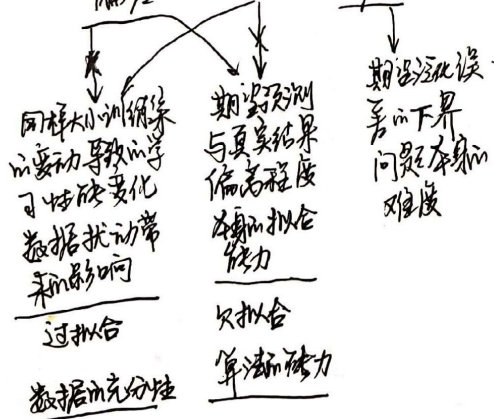 同样大小训练集
的变动导致的学
习性能变化
数据扰动带
来的影响
过拟合
数据的充分性
期望预测
与真实结果
偏离程度
本身的拟合
能力
欠拟合
算法的能力
期望泛化误
差的下界
问题本身的
难度